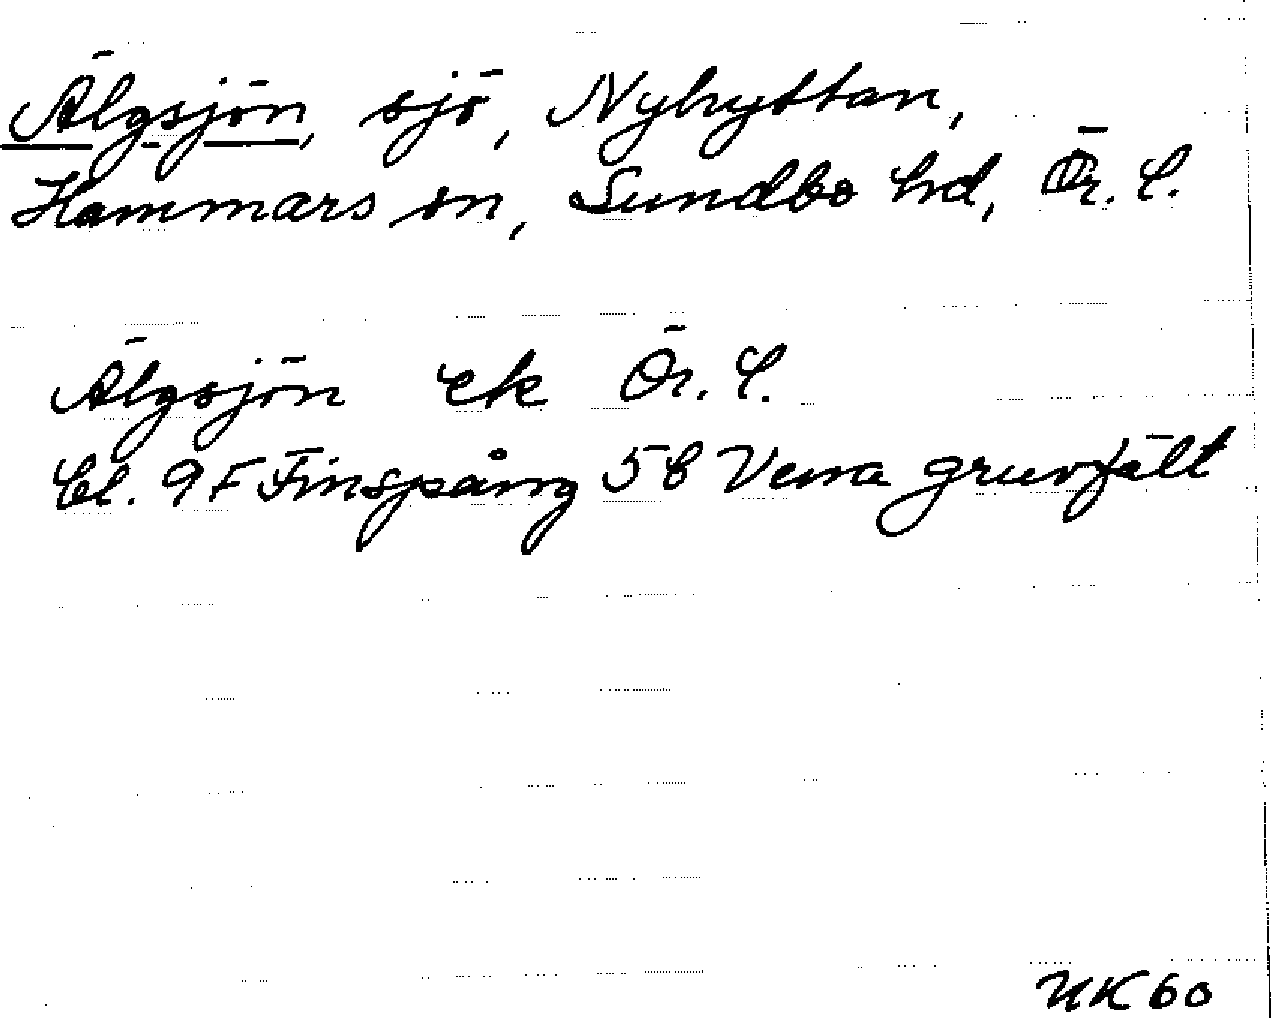 Älgsjön, sjö, Nyhyttan,
Hammars sn, Sundbo hd, Ör. l.
Älgsjön ek Ör. l.
bl. 9F Finspång 5b Vena gruvfält
NK 60